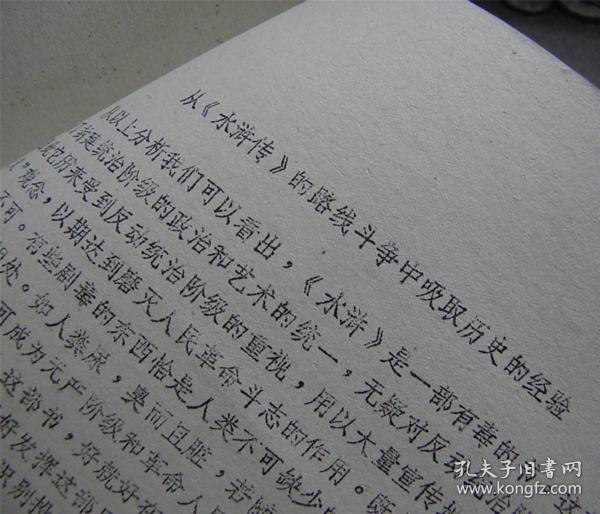 从《水浒传》的路线斗争中吸取历史的经验
从以上分析我们可以看出，《水浒》是一部有毒的
是统治阶级的政治和艺术的统一，无疑对反动统治阶
历来受到反动统治阶级的重视，用以大量宣传
观念，以期达到磨灭人民革命斗志的作用。既
不可。有些剧毒的东西恰是人类不可缺少
处。如人粪尿，臭而且脏，若
可成为无产阶级和革命人
这部书，好就好在
好发挥这部
识别投
孔夫子旧书网
www.kongfz.com